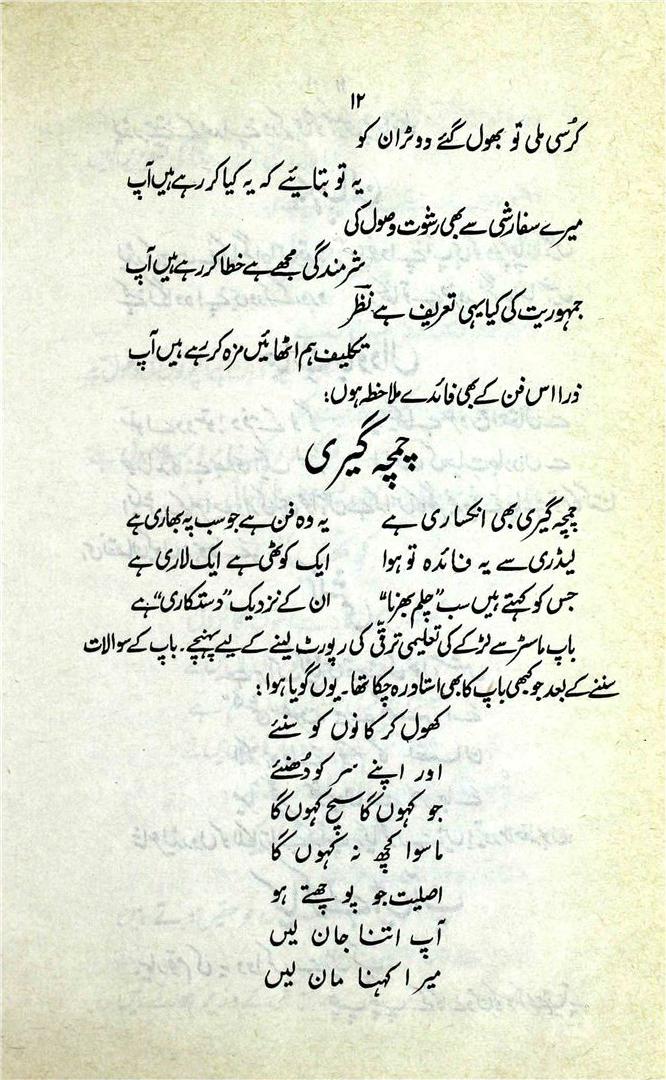 ۱۲
کرسی ملی تو بھول گئے ووٹران کو
یہ تو بتائیے کہ یہ کیا کر رہے ہیں آپ
میرے سفارشی سے بھی رشوت وصول کی
شرمندگی مجھے ہے خطا کر رہے ہیں آپ
جمہوریت کی کیا یہی تعریف ہے نظرؔ
تکلیف ہم اٹھائیں مزہ کر رہے ہیں آپ
ذرا اس فن کے بھی فائدے ملاحظہ ہوں؛
چمچہ گیری
چمچہ گیری بھی انکساری ہے یہ وہ فن ہے جو سب پہ بھاری ہے
لیڈری سے یہ فائدہ تو ہوا ایک کوٹھی ہے ایک لاری ہے
جس کو کہتے ہیں سب "چلم بھرنا" ان کے نزدیک "دستکاری" ہے
باپ ماسٹر سے لڑکے کی تعلیمی ترقی کی رپورٹ لینے کے لیے پہنچے۔ باپ کے سوالات
سننے کے بعد جو کبھی باپ کا بھی استاد رہ چکا تھا۔ یوں گویا ہوا؛
کھول کر کانوں کو سنئے
اور اپنے سر کو دُھنئے
جو کہوں گا سچ کہوں گا
ماسوا کچھ نہ کہوں گا
اصلیت جو پوچھتے ہو
آپ اتنا جان لیں
میرا کہنا مان لیں